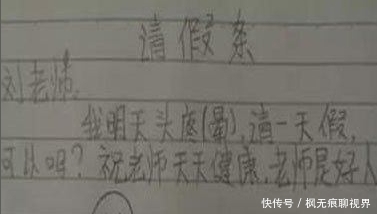 请假条
刘老师.
我明天头疼(晕)请一天假,
可以吗?祝老师天天健康.老师是好人
快传号/枫无痕聊视界